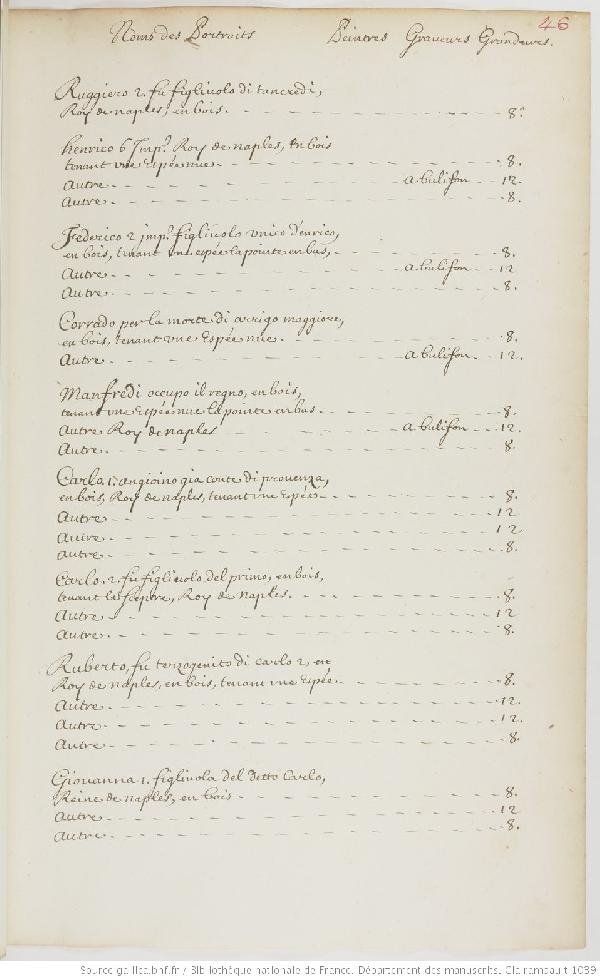 46
Noms des Portraits Peintres Graveurs Grandeurs.
Ruggiero 2. fu figliuolo di tancredi,
Roy de naples, en bois. 8.
henrico 6 Imp.r Roy de naples, en bois
tenant vne Espée nue. 8.
Autre. a bulifon 12
Autre. 8.
Federico 2 imp.r figliuolo vnico d'enrico,
en bois, tenant vne espée la pointe en bas, 8.
Autre. a bulifon 12
Autre. 8.
Corrado per la morte di arrigo maggiore,
en bois, tenant vne Espée nue. 8.
Autre. a bulifon. 12.
Manfredi occupo il regno, en bois,
tenant vne Espée nue la pointe en bas. 8.
Autre Roy de naples a bulifon 12.
Autre. 8.
Carlo 1. angioino gia conte di prouenza,
en bois, Roy de naples, tenant vne Espée 8.
Autre 12
Autre. 12
Autre. 8.
Carlo. 2. fu figliuolo del primo, en bois,
tenant le sceptre, Roy de naples. 8.
Autre 12
Autre. 8.
Ruberto, fu terzogenito di carlo 2, en
Roy de naples, en bois, tenant vne Espée. 8.
Autre. 12.
Autre. 12.
Autre. 8.
Giouanna 1. figliuola del Detto Carlo,
Reine de naples, en bois 8.
Autre 12
Autre. 8.
Source gallica.bnf.fr / Bibliothèque nationale de France. Département des manuscrits. Clairambault 1039